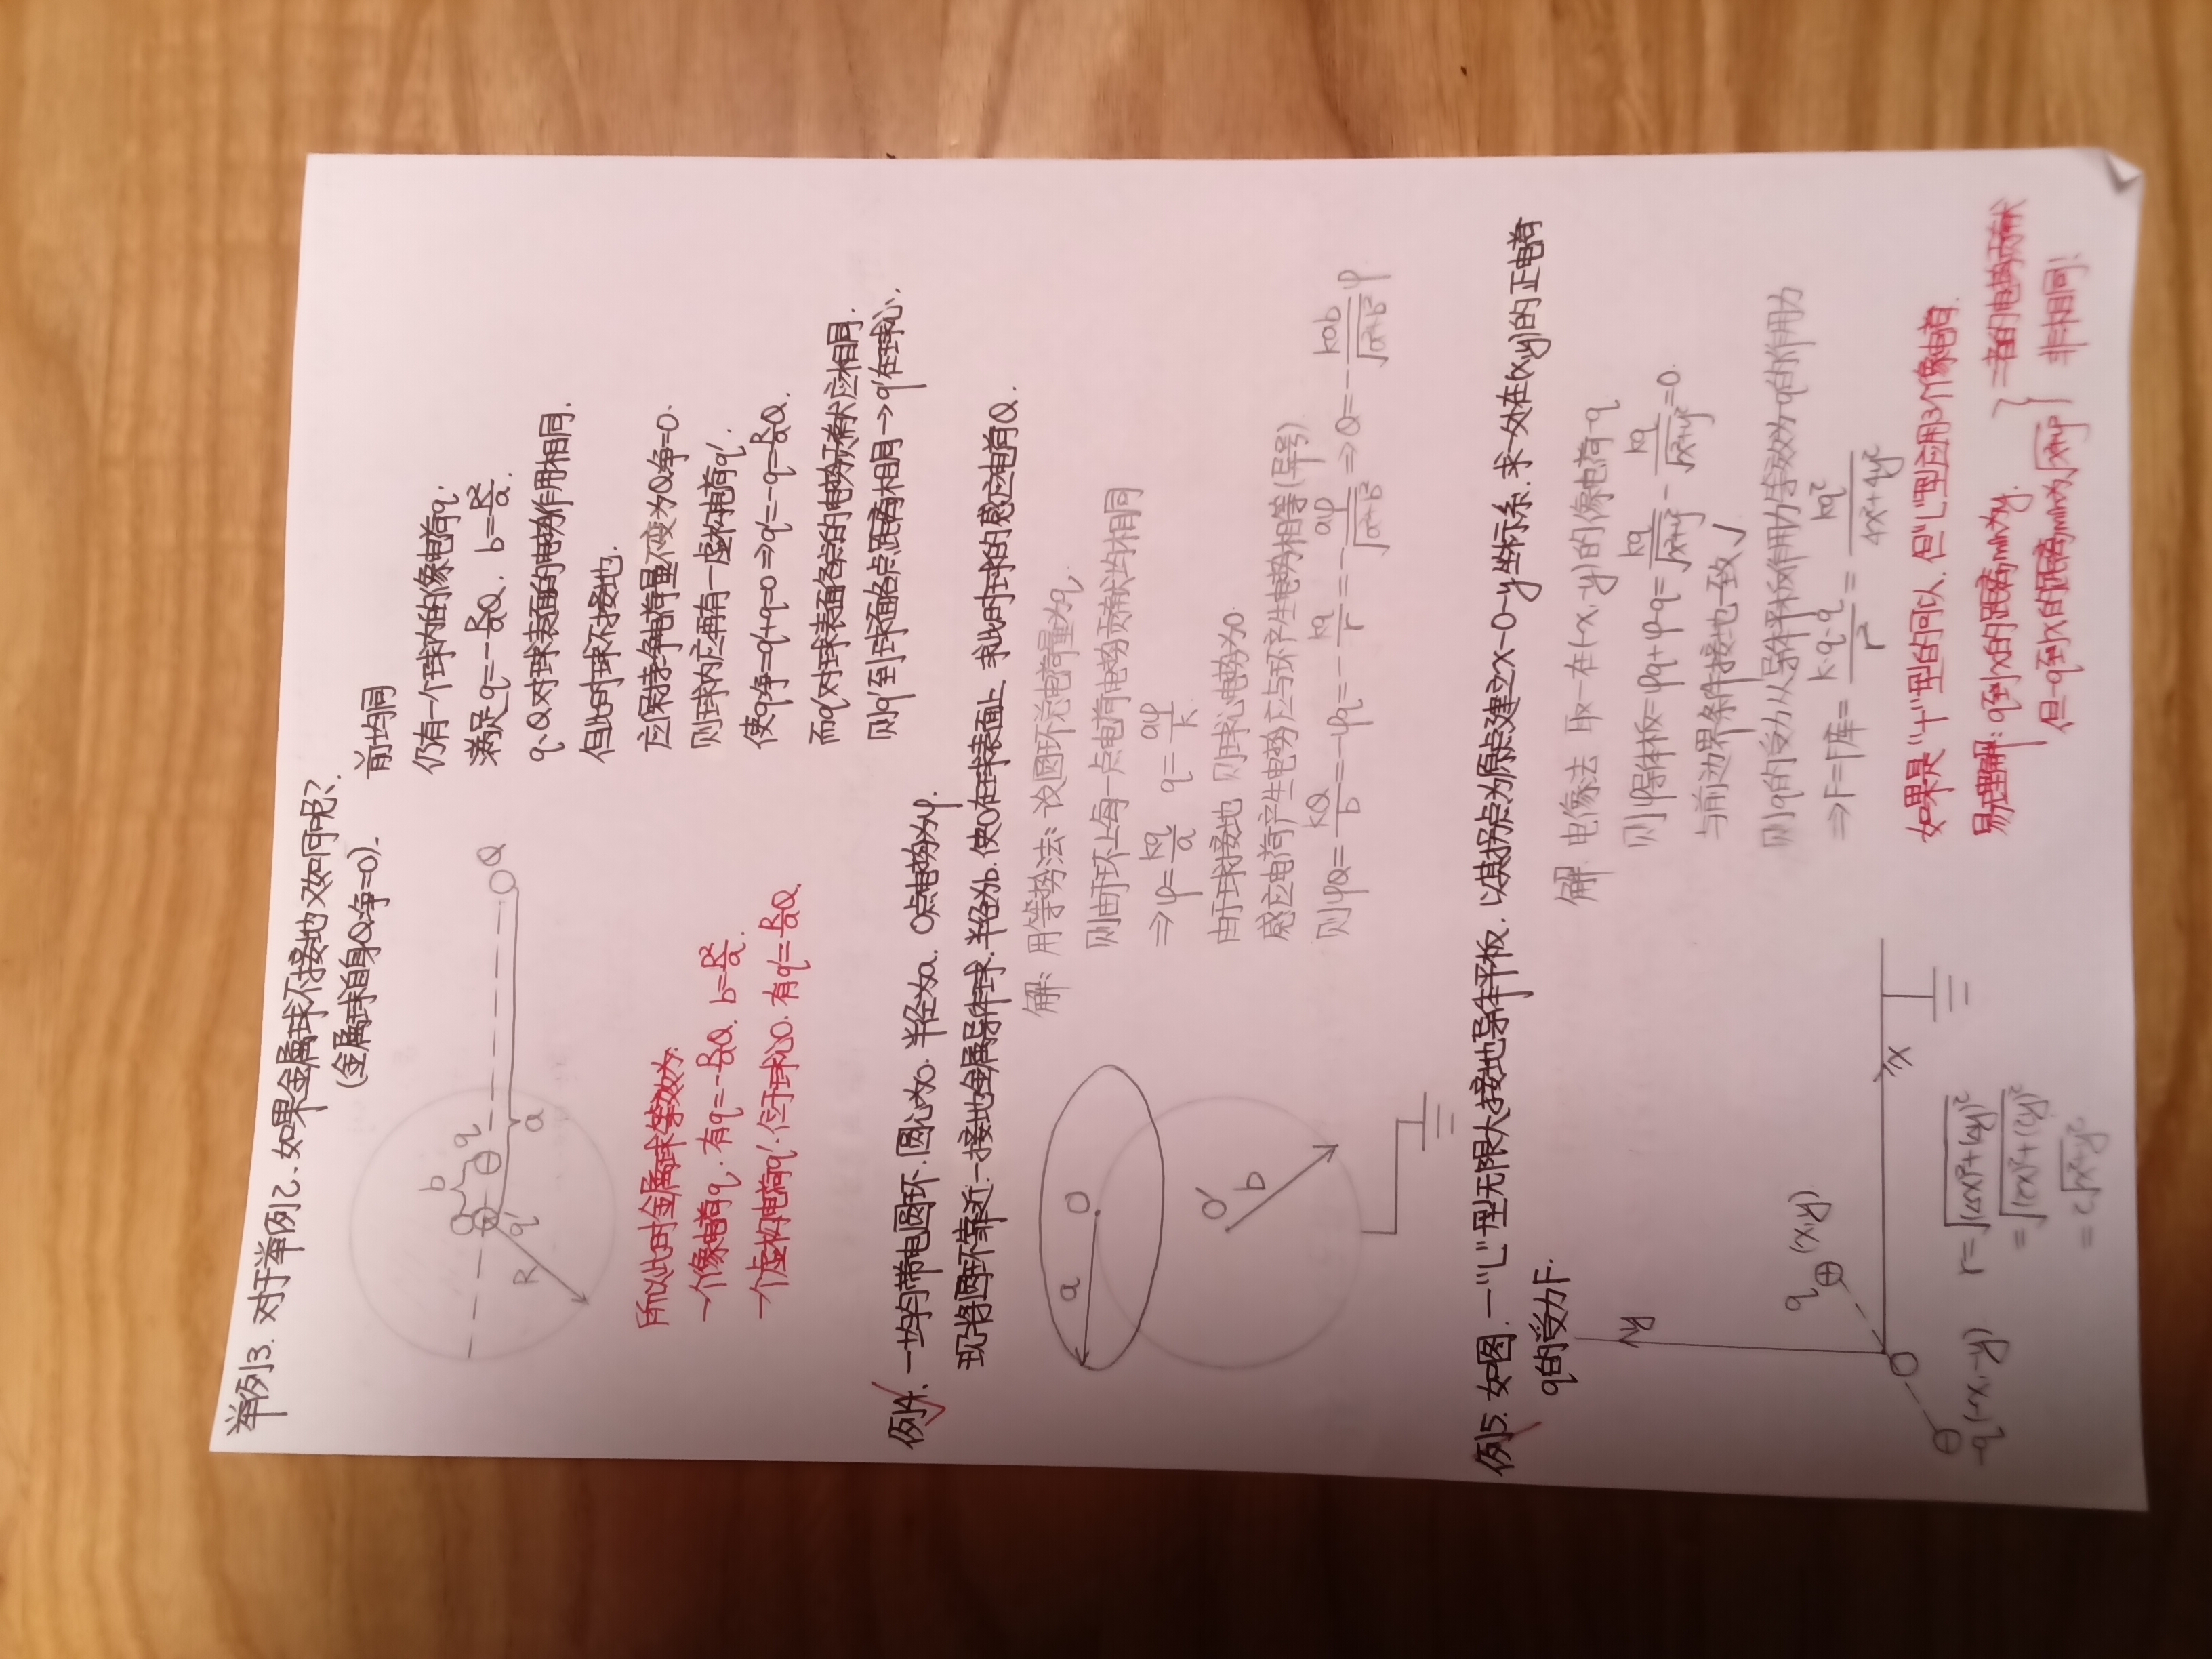 举例3. 对于举例2、如果金属球不接地又如何呢?
(金属球自身Q净=0).
前均同
仍有一个球内的像电荷q.
满足q=-R/aQ. b=R²/a.
q、Q对球表面的电势作用相同.
但此时球不接地.
应保持净电荷量不变为Q净=0.
则球内应再有一虚构电荷q'.
使q净=q'+q=0⇒q'=-q=R/aQ.
而q'对球表面各点的电势贡献应相同.
则q'到球面各点距离相同→q'在球心.
b
q
Q
q'
R
a
所以此时金属球等效为:
一个像电荷q.有q=-R/aQ. b=R²/a.
一个虚构电荷q'.位于球心O.有q'=R/aQ.
例4. 一均匀带电圆环.圆心为O.半径为a. O点电势为φ.
现将圆环靠近一接地金属导体球.半径为b.使O在球表面上、求此时球的感应电荷Q.
解: 用等势法: 设圆环总电荷量为q.
则由于环上每一点电荷电势贡献均相同
⇒φ=kq/a q=aφ/k
由于球接地.则球心电势为0.
感应电荷产生电势应与环产生电势相等(异号)
则φQ=kQ/b=-φq=-kq/r=-aφ/√a²+b²⇒Q=-kab/√a²+b²φ
a
O
O'
b
例5. 如图.一"L"型无限大接地导体平板.以其拐点为原点建立x-O-y坐标系.求一处在(x,y)的正电荷
q的受力F.
解. 电像法 取一在(-x,-y)的像电荷-q
则φ导体板=φq+φ-q=kq/√x²+y²-kq/√x²+y²=0.
与前边界条件接地一致✓
则q的受力从导体平板作用力等效为-q的作用力
⇒F=F库=k·q·q/r²=kq²/4x²+4y²
如果是"十"型的可以.但"L"型应用3个像电荷.
易理解: q到x的距离min为y.
但-q到x的距离min为√x²+y²
}二者的电势贡献
非相同!
y
x
O
q (x,y)
-q(-x,-y)